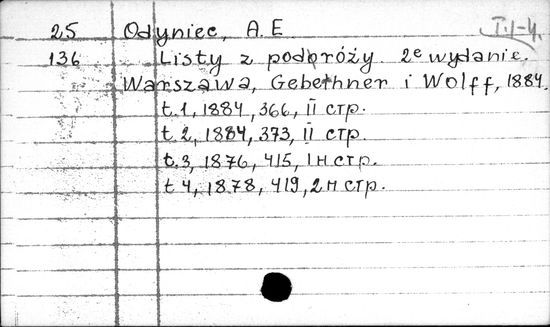 25 Odyniec, A. E T.1-4.
136 Listy z podróży 2e wydanie.
Warszawa, Gebethner i Wolff, 1884.
t.1, 1884, 366, II стр.
t.2, 1884, 373, II стр.
t.3, 1876, 415, 1н стр.
t 4, 1878, 419, 2н стр.